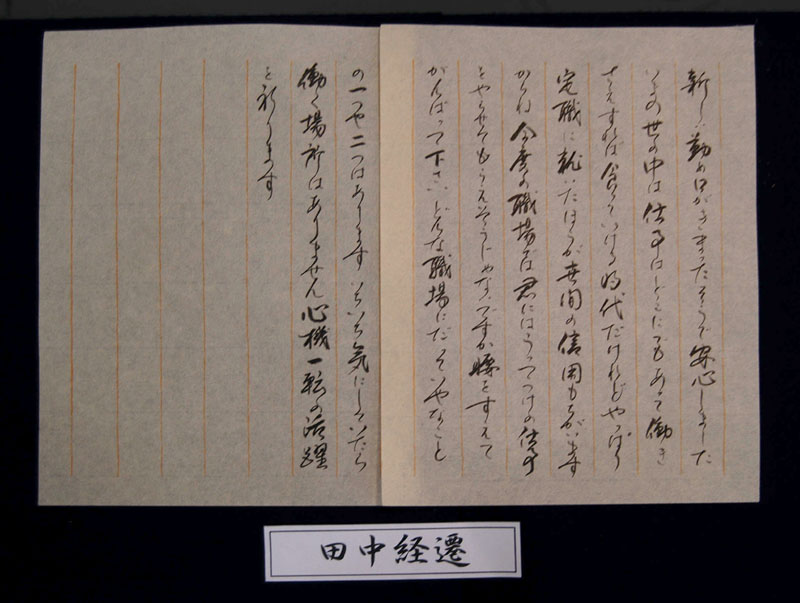 新しい勤め口がきまったそうで安心しました
いまの世の中は仕事はどこにでもあって働き
さえすれば食っていける時代だけれどやっぱり
定職に就いたほうが世間の信用もちがいます
からね今度の職場では君にはうってつけの仕事
をやらせてもらえそうじゃないですか腰をすえて
がんばって下さいどんな職場にだっていやなこと
の一つや二つはあります いちいち気にしていたら
働く場所はありません心機一転の活躍
を祈ります
田中経遷